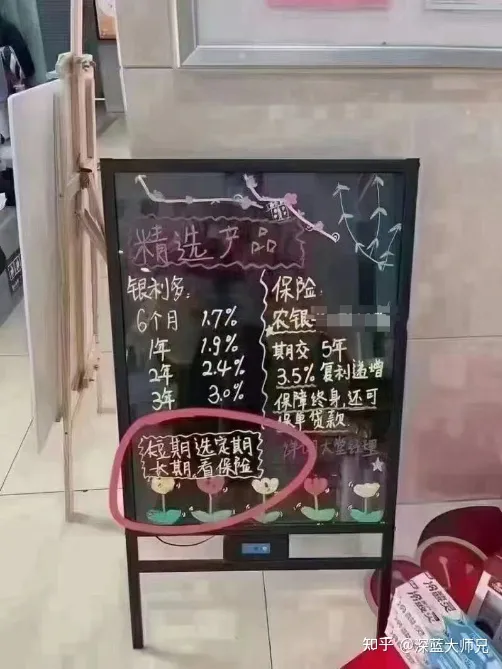 精选产品
银利多:
6个月 1.7%
1年 1.9%
2年 2.4%
3年 3.0%
短期选定期
长期看保险
保险:
农银
期交 5年
3.5%复利递增
保障终身,还可
保单贷款
详询大堂经理
知乎 @深蓝大师兄